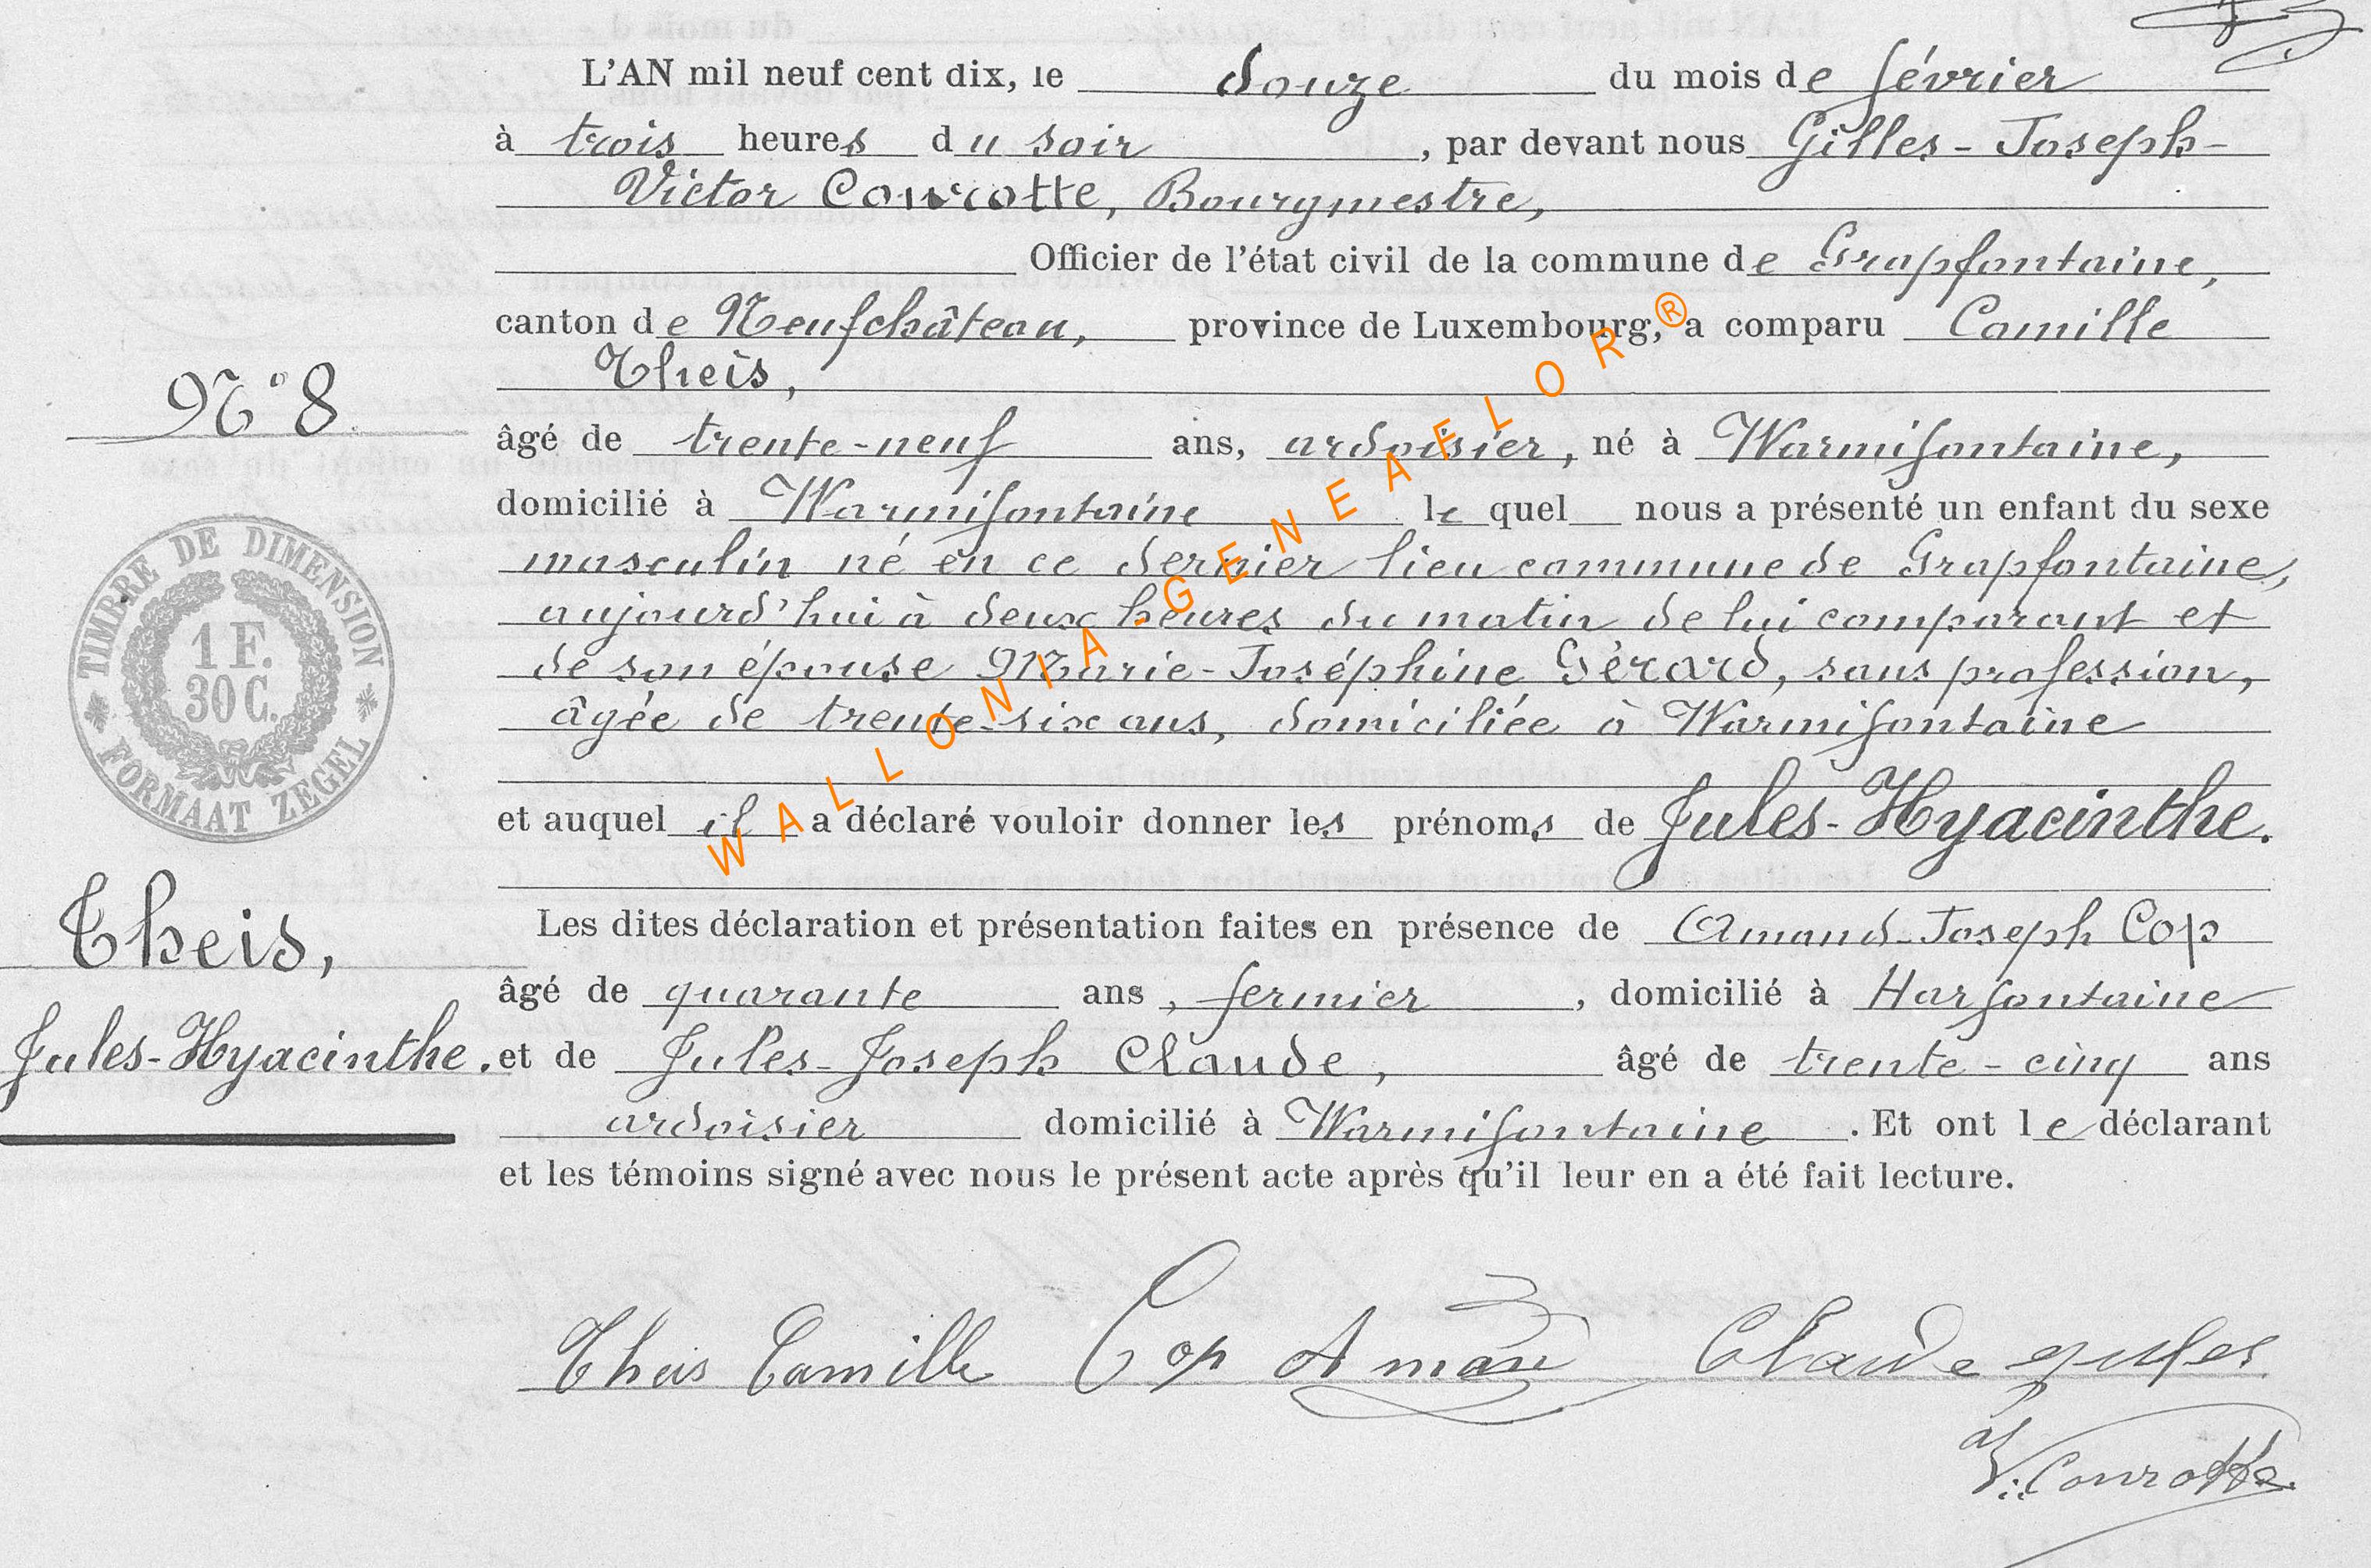 L'AN mil neuf cent dix, le douze du mois de février
à trois heures du soir, par devant nous Gilles-Joseph-
Victor Conrotte, Bourgmestre,
Officier de l'état civil de la commune de Grapfontaine,
canton de Neufchâteau, province de Luxembourg, a comparu Camille
Theis,
N° 8
âgé de trente-neuf ans, ardoisier, né à Warmifontaine,
domicilié à Warmifontaine lequel nous a présenté un enfant du sexe
masculin né en ce dernier lieu commune de Grapfontaine,
aujourd'hui à deux heures du matin de lui comparant et
de son épouse Marie-Joséphine Gérard, sans profession,
âgée de trente-six ans, domiciliée à Warmifontaine
TIMBRE DE DIMENSION
1 F.
30 C.
FORMAAT ZEGEL
et auquel il a déclaré vouloir donner les prénoms de Jules-Hyacinthe.
Theis,
Jules-Hyacinthe.
Les dites déclaration et présentation faites en présence de Amand-Joseph Cop
âgé de quarante ans, fermier, domicilié à Harfontaine
et de Jules-Joseph Claude, âgé de trente-cinq ans
ardoisier domicilié à Warmifontaine. Et ont le déclarant
et les témoins signé avec nous le présent acte après qu'il leur en a été fait lecture.
Theis Camille Cop Amand Claude Jules
V. Conrotte
WALLONIA-GENEAFLOR®